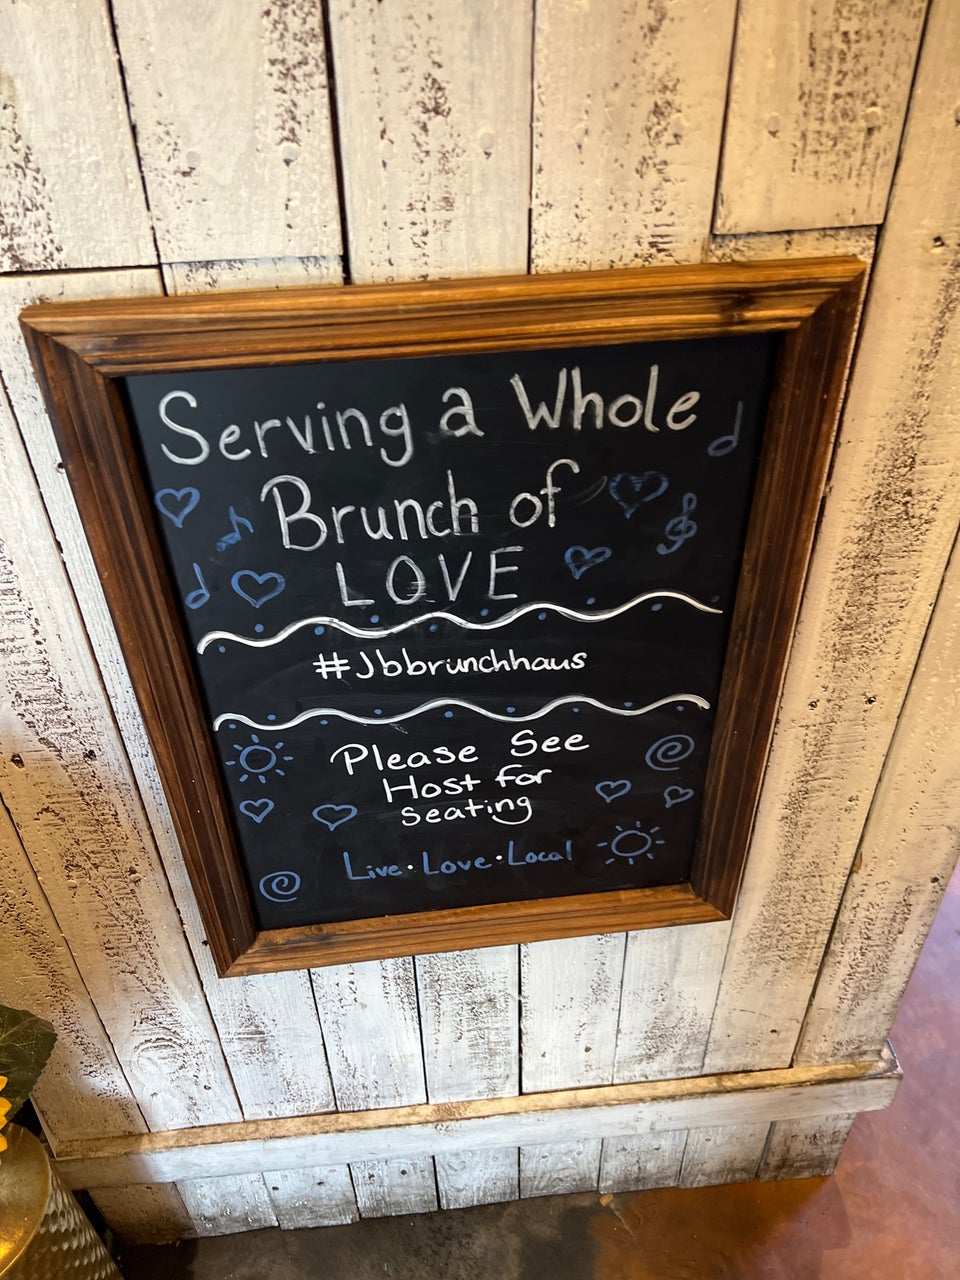 Serving a Whole
Brunch of
LOVE
#Jbbrunchhaus
Please See
Host for
Seating
Live • Love • Local